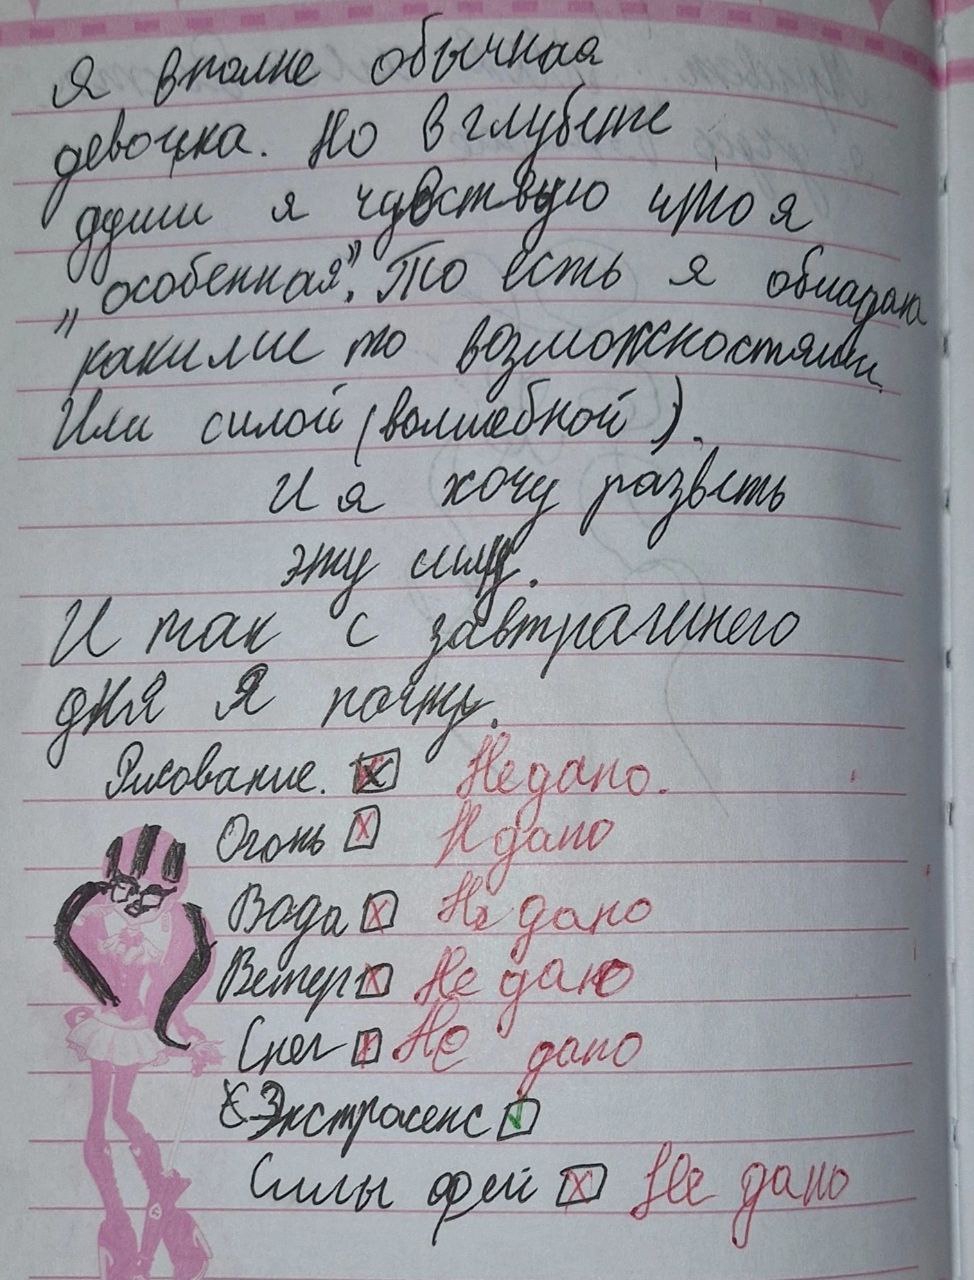 Я вполне обычная
девочка. Но в глубене
души я чувствую что я
„особенная”. То есть я обладаю
какими то возможностями.
Или силой (волшебной).
И я хочу разветь
эту силу.
И так с завтрашнего
дня Я начну.
Рисование. Не дано.
Огонь Н дано
Вода Не дано
Ветер Не дано
Снег Не дано
Экстрасенс
Силы фей Не дано